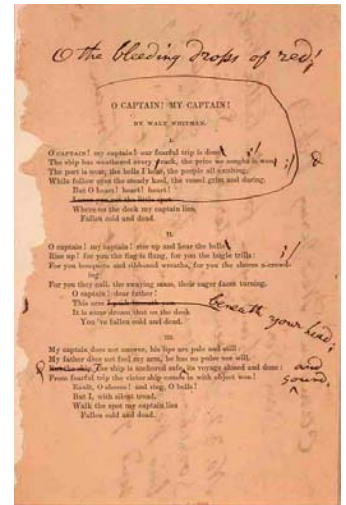 O the bleeding drops of red;
O CAPTAIN! MY CAPTAIN!
BY WALT WHITMAN.
I.
O CAPTAIN! my captain! our fearful trip is done;
The ship has weathered every rack, the prize we sought is won;
The port is near, the bells I hear, the people all exulting,
While follow eyes the steady keel, the vessel grim and daring.
But O heart! heart! heart!
Where on the deck my captain lies,
Fallen cold and dead.
II.
O captain! my captain! rise up and hear the bells;
Rise up! for you the flag is flung, for you the bugle trills:
For you bouquets and ribboned wreaths, for you the shores a-crowd-
ing:
For you they call, the swaying mass, their eager faces turning.
O captain! dear father!
This arm
beneath your head;
It is some dream that on the deck
You 've fallen cold and dead.
III.
My captain does not answer, his lips are pale and still:
My father does not feel my arm, he has no pulse nor will.
But the ship, The ship is anchored safe, its voyage closed and done:
and sound.
From fearful trip the victor ship comes in with object won!
Exult, O shores! and ring, O bells!
But I, with silent tread,
Walk the spot my captain lies
Fallen cold and dead.